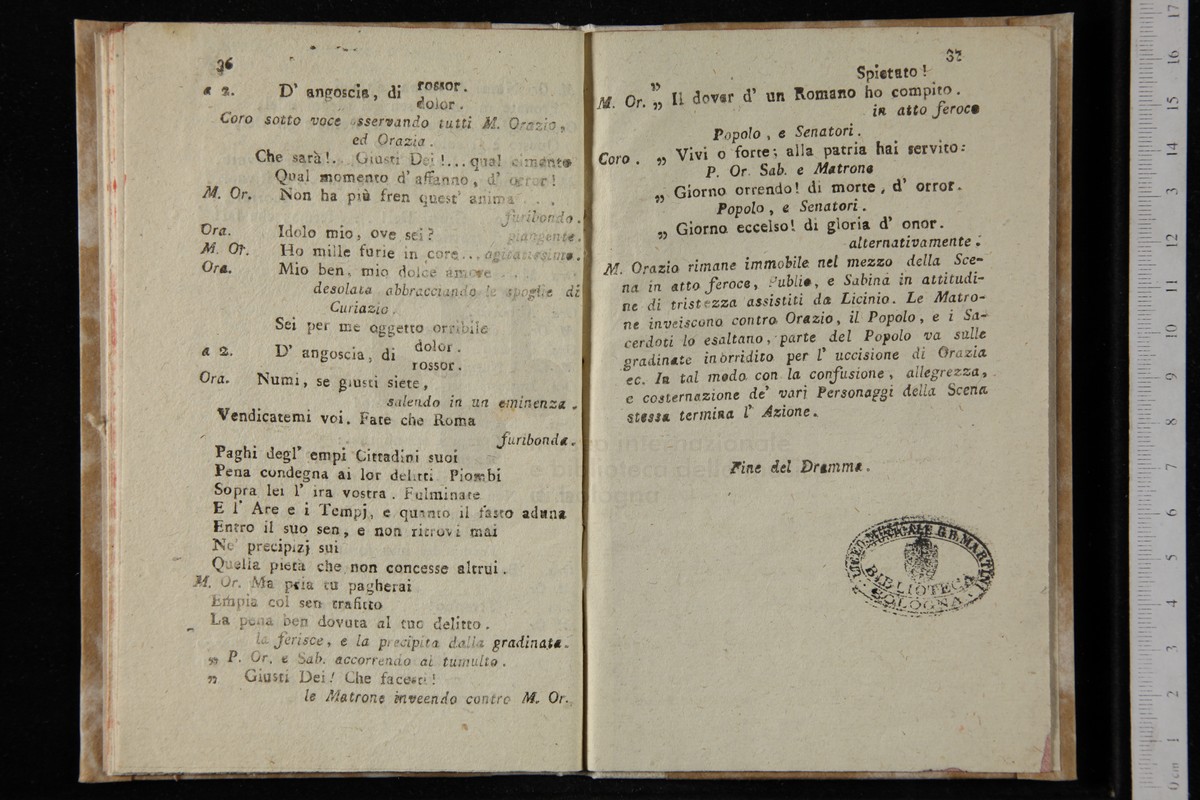 36
a 2. D' angoscia, di rossor.
dolor.
Coro sotto voce osservando tutti M. Orazio,
ed Orazia.
Che sarà!.. Giusti Dei!... qual cimento
Qual momento d' affanno, d' orror!
M. Or. Non ha più fren quest' anima . . .
furibondo.
Ora. Idolo mio, ove sei? piangente.
M. Or. Ho mille furie in core... agitatissimo.
Ora. Mio ben, mio dolce amore . . .
desolata abbracciando le spoglie di
Curiazio.
Sei per me oggetto orribile
a 2. D' angoscia, di dolor.
rossor.
Ora. Numi, se giusti siete,
salendo in un eminenza.
Vendicatemi voi. Fate che Roma
furibonda.
Paghi degl' empi Cittadini suoi
Pena condegna ai lor delitti. Piombi
Sopra lei l' ira vostra. Fulminate
E l' Are e i Tempj, e quanto il fasto aduna
Entro il suo sen, e non ritrovi mai
Ne' precipizj sui
Quella pietà che non concesse altrui.
M. Or. Ma pria tu pagherai
Empia col sen trafitto
La pena ben dovuta al tuo delitto.
la ferisce, e la precipita dalla gradinata.
„ P. Or. e Sab. accorrendo al tumulto.
„ Giusti Dei! Che facesti!
le Matrone inveendo contro M. Or.
37
„ Spietato!
M. Or. „ Il dover d' un Romano ho compito.
in atto feroce
Popolo, e Senatori.
Coro. „ Vivi o forte; alla patria hai servito:
P. Or. Sab. e Matrone
„ Giorno orrendo! di morte, d' orror.
Popolo, e Senatori.
„ Giorno eccelso! di gloria d' onor.
alternativamente.
M. Orazio rimane immobile nel mezzo della Sce-
na in atto feroce, Publio, e Sabina in attitudi-
ne di tristezza assistiti da Licinio. Le Matro-
ne inveiscono contro Orazio, il Popolo, e i Sa-
cerdoti lo esaltano, parte del Popolo va sulle
gradinate inorridito per l' uccisione di Orazia
ec. In tal modo con la confusione, allegrezza,
e costernazione de' vari Personaggi della Scena
stessa termina l' Azione.
museo internazionale
e biblioteca della
di bologna
Fine del Dramma.
LICEO MUSICALE G.B. MARTINI
BIBLIOTECA
BOLOGNA
0 cm 1 2 3 4 5 6 7 8 9 10 11 12 13 14 15 16 17